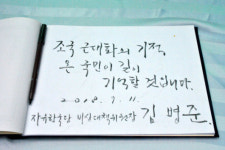 조국 근대화의 기적,
온 국민이 길이
기억할 것입니다.
2018. 7. 11.
자유한국당 비상대책위원장 김병준